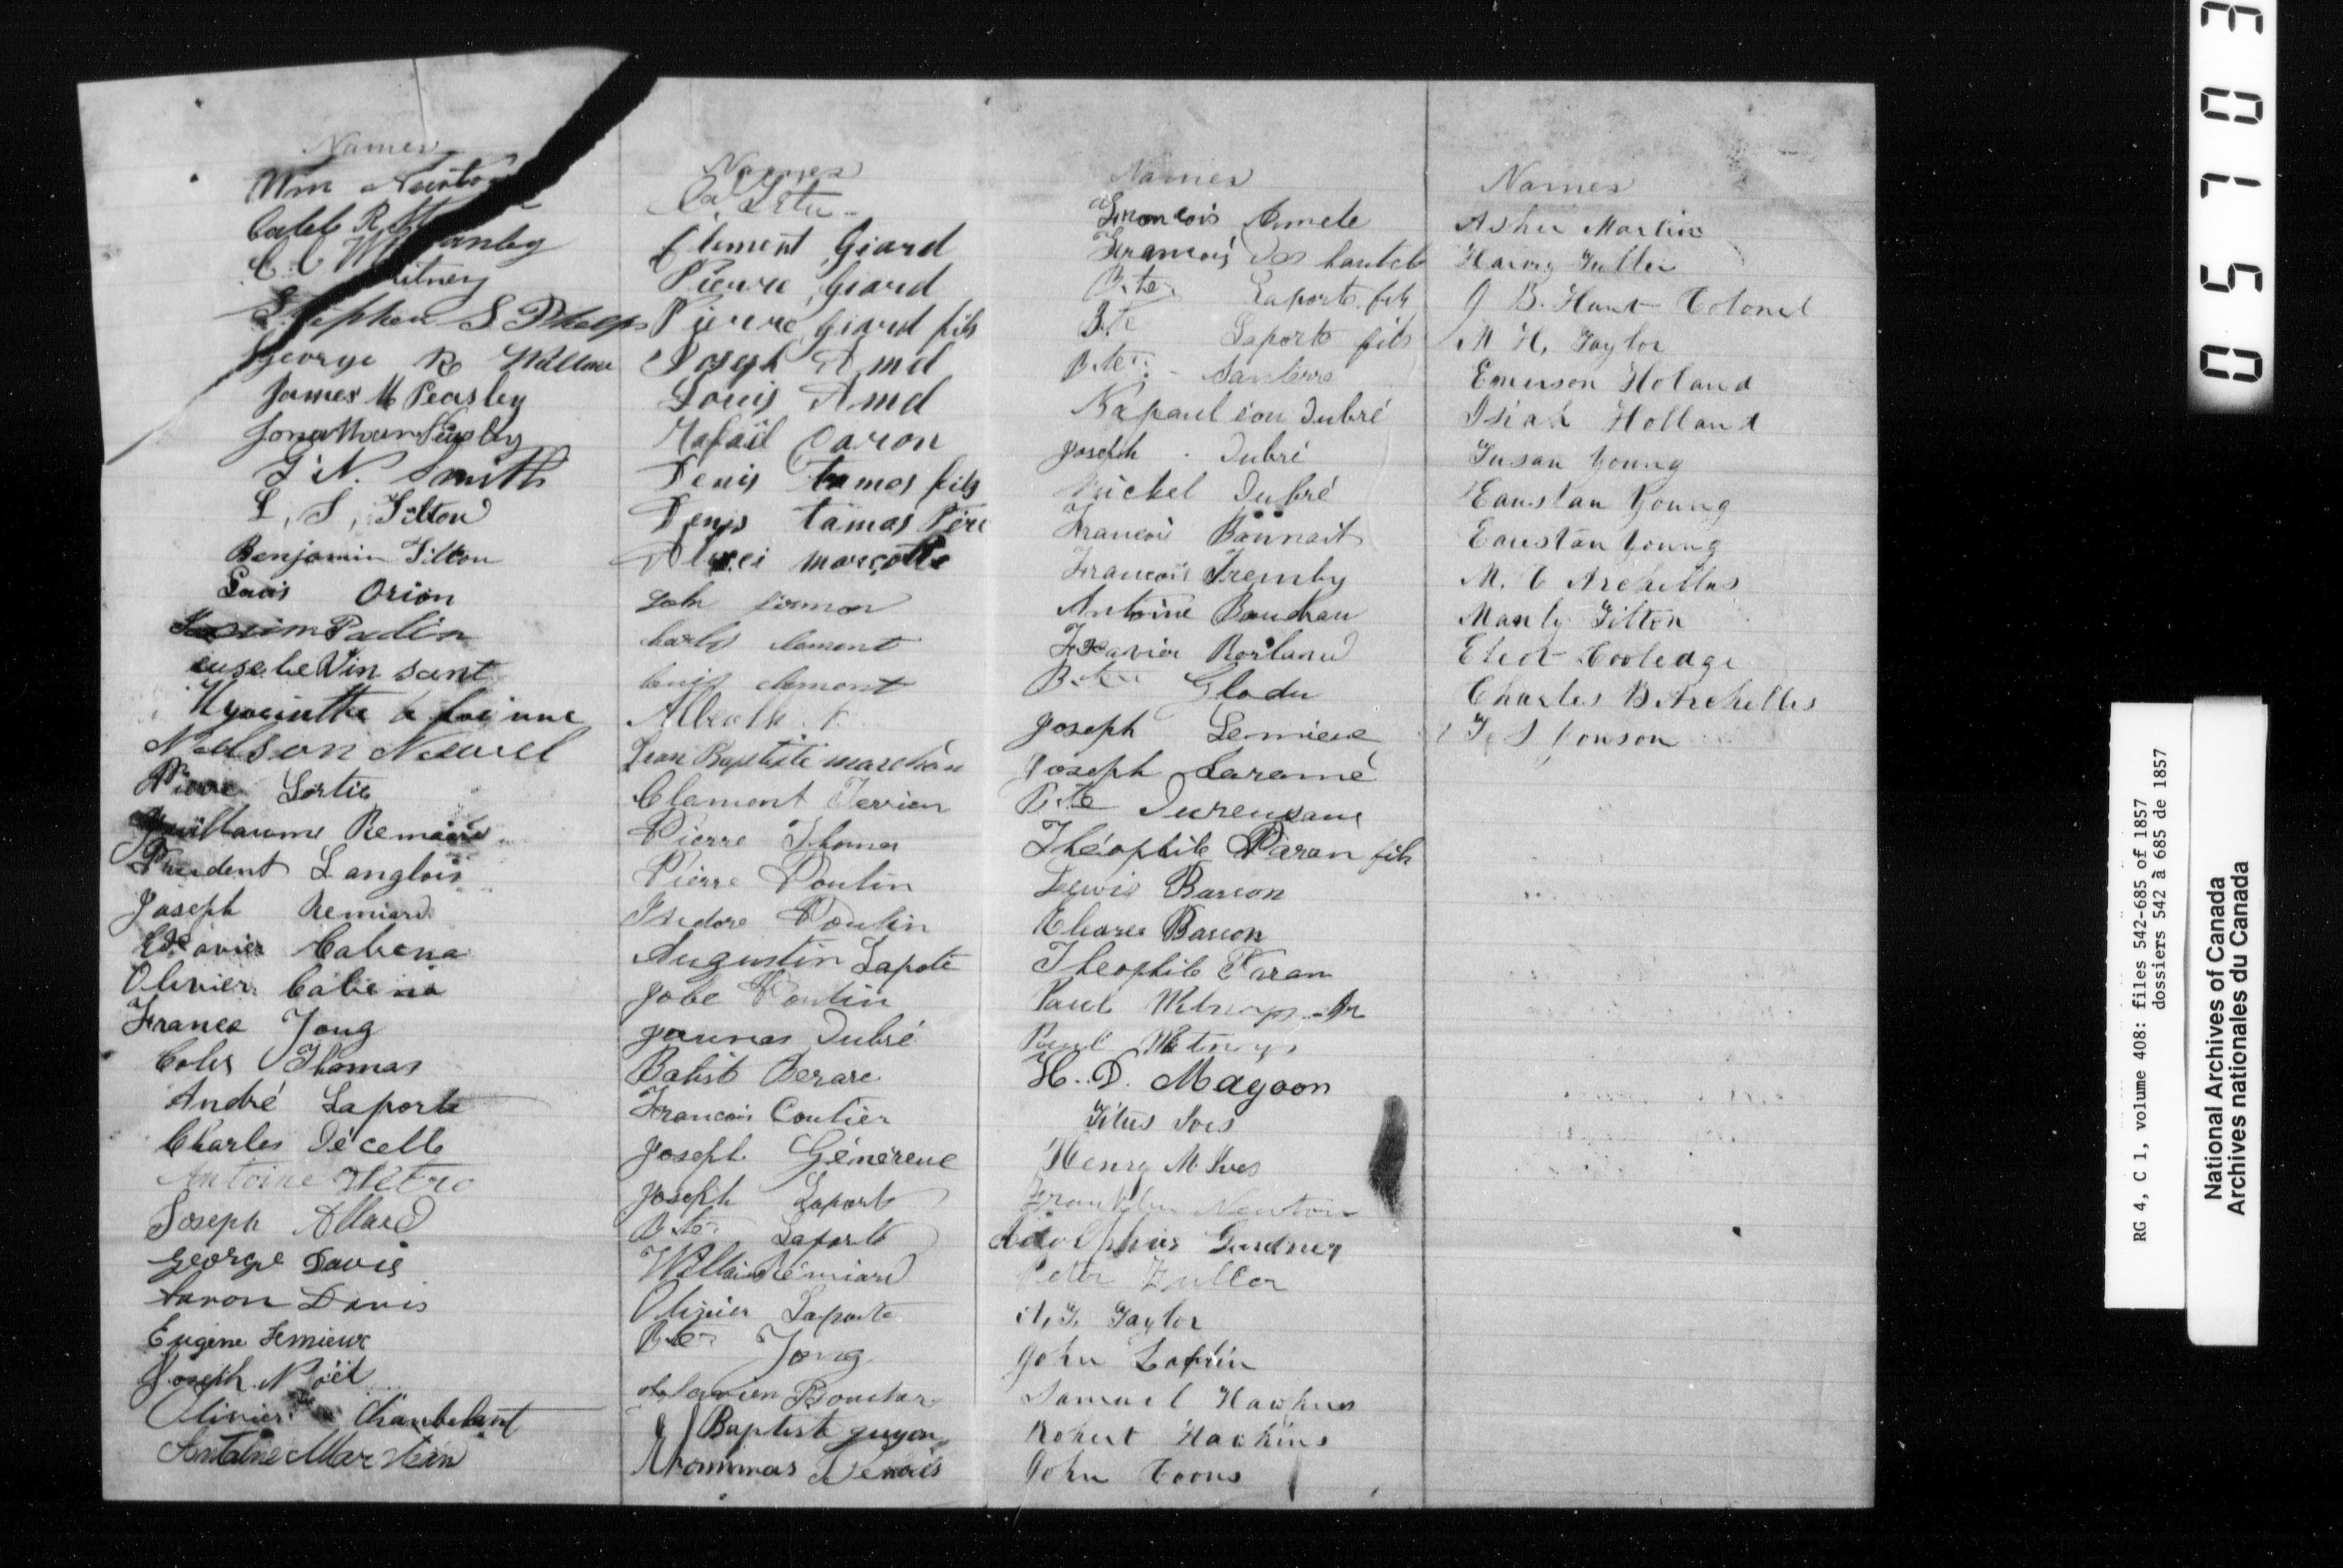 Names
Wm Newton
Caleb R
C. C. W
anby
itney
Stephen S Phelps
George R Willson
James M Peasley
Jonathan Peasley
J N. Smith
L. S. Tilton
Benjamin Tilton
Louis Orion
Padin
eusebe Vin sant
Hyacinthe
Nelson Newel
Pierre Lortie
Guillaume Remaire
Prudent Langlois
Joseph Remiard
Xavier Cabana
Olivier Cabena
France Jong
Coler Thomas
André Laporte
Charles Décelle
Antoine Hétre
Joseph Allard
George Davis
Aaron Davis
Eugene Lemieux
Joseph Noël
Olivier Chambelant
Antoine Marstein
Names
Clement Giard
Pierre Giard
Pierre Giard fils
Joseph Amd
Louis Amd
Rafaïl Caron
Denis tamas fils
Denys tamas Père
Alexei marcotte
John
Charles clement
Louis clement
Jean Baptiste marchan
Clement Terrien
Pierre Thomas
Pierre Poulin
Isidore Poulin
Augustin Lapote
Jobe Poulin
Dubré
Batist Berare
Francois Coutier
Joseph Génereue
Joseph Laporte
Bte Laporte
William Rémiard
Olivier Laporte
Bte Jong
Bouchar
J Baptiste guyon
Thommas Denais
Names
Francois Amele
Francois Des hautels
Bte Laporte fils
Bte Laporte fils
Bte Santerre
Napauléon Dubré
Joseph Dubré
Michel Dubré
Francois Bonnait
Francois Tremby
Antoine Boudrau
Xavier Rorland
Bte Gladu
Joseph Lemieux
Joseph Laramé
Bte Durensaux
Théophile Paran fils
Lewis Barron
Charles Barron
Theophile Paran
Paul Jr
Paul
H. D. Magoon
Titus Ives
Henry M Ives
Franklin Newton
Adolphus Gardner
Peter Fuller
A. T. Taylor
John Laflin
Samuel Hawkins
Robert Hawkins
John Coons
Names
Asher Martin
Harvy Fuller
J B. Hunt Colonel
M H. Taylor
Emerson Holand
Isiah Holland
Susan Young
Eaustan Young
Eaustan Young
M. C Archelles
Manly Tilton
Eliot Cooledge
Charles B Archelles
T S Jonson
05703
RG 4, C 1, volume 408: files 542-685 of 1857
dossiers 542 à 685 de 1857
National Archives of Canada
Archives nationales du Canada